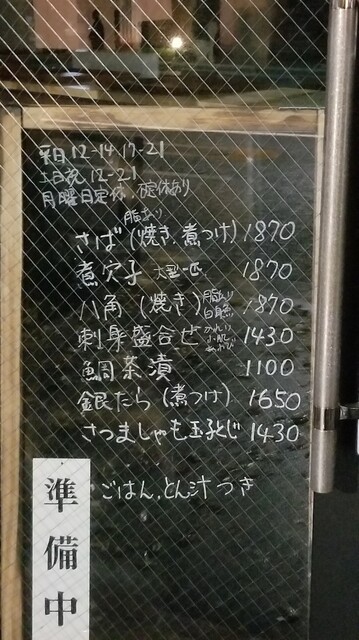 平日 12-14 17-21
土日祝 12-21
月曜日定休、確休あり
脂あり
さば(焼き、煮つけ) 1870
煮穴子 大型一匹 1870
八角(焼き) 脂あり 白身魚 1870
刺身盛合せ 1430
鯛茶漬 1100
銀だら(煮つけ) 1650
さつましゃも玉子とじ 1430
ごはん、とん汁つき
準備中